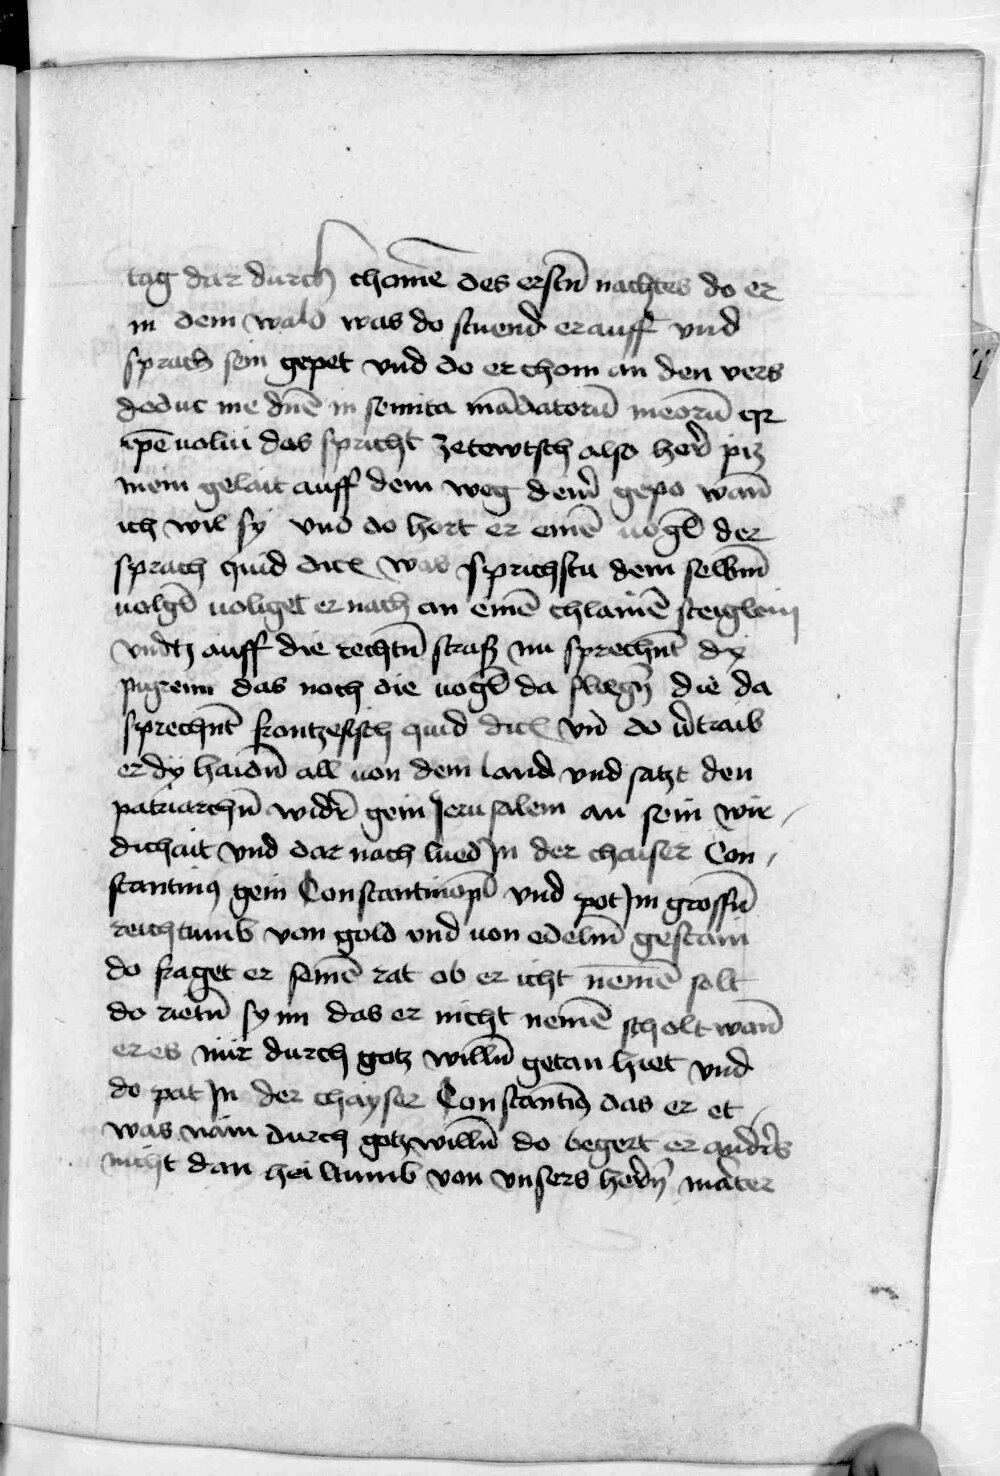 tag dar durch chomē des erstn̄ nachtes do er
in dem wald was do stuend er auff vnd
sprach sein gepet vnd do er chom an den vers
deduc me dn̄e in semita mādatorū meorū qr
ip̄e uolui das spricht zetewtsch also her̄ piz
mein gelait auff dem weg dein̄ gepo wan̄
ich wil sy vnd do hort er einē uogl̄ der
sprach quid dicl was sprichstu dem selbm̄
uolgl̄ uolget er nach an einē chlainē steiglein
vnd̄tz auff die rechtn̄ strass nu sprechn̄t dy
pilgreim das noch die uogl̄ da fliegn̄ die da
sprechn̄t frantzesisch quid dicl vn̄ do v̄traib
er dy haidn̄ all uon dem land vnd satzt den
patriarchn̄ widr̄ gein Jerusalem an sein wir-
dichait vnd dar nach lued In der chaiser Con-
stantinus gein Constantinop̄l vnd pot Im grossn̄
reichtumb von gold vnd uon edelm̄ gestain
do fraget er seinē rat ob er icht nemē solt
do rietn̄ sy im das er nicht nemē scholt wan̄
er es nur durch gotz willn̄ getan hiet vnd
do pat In der chayser Constantin9 das er et-
was nām durch gotz willn̄ do begert er andr̄s
nicht dan heiltumb von vnsers herrn̄ marter